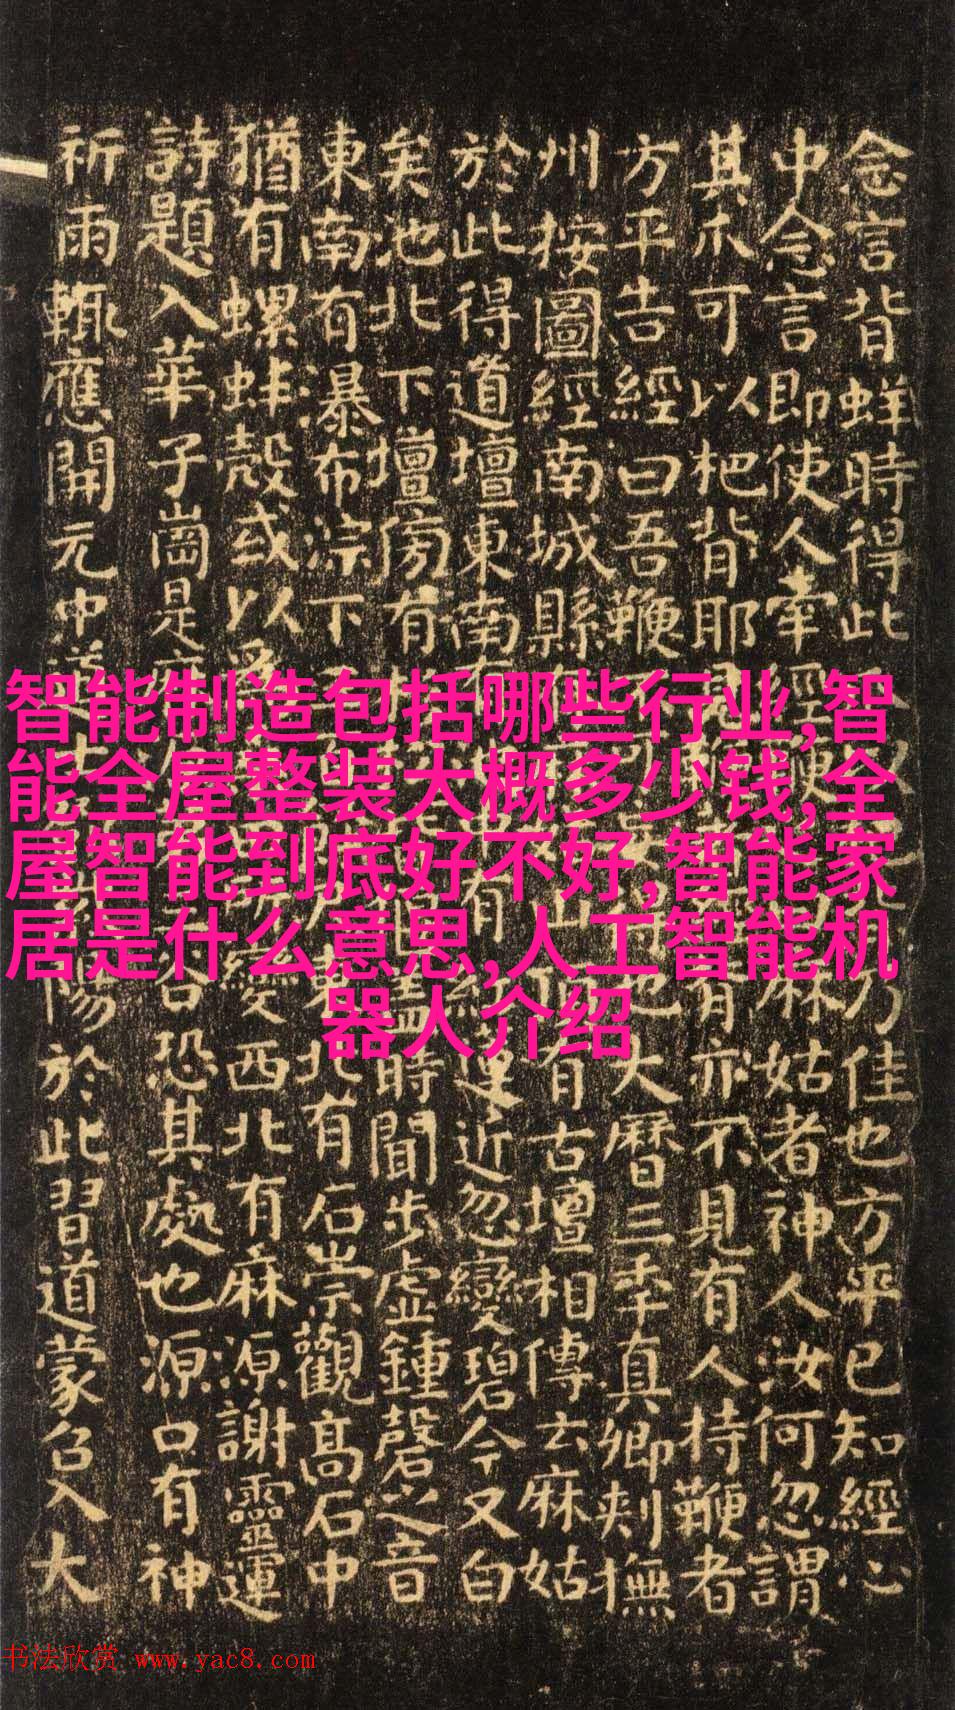 念言背蛘時得此乃佳也方平已知經心
中念言即使人牽經鞭麻姑者神人汝何忽謂
其爪可以杷背耶見有亦不見有人持鞭者
方平告經曰吾鞭也大曆三季真卿刾撫
州按圖經南城縣有古壇相傳云麻姑
於此得道壇東南蓮近忽變碧今又白
矣池北下壇傍有時聞步虛鍾磬之音
東南有瀑布淙下北有石崇觀高石中
猶有螺蚌殼或以為變西北有麻源謝靈運
詩題入華子崗是恐其處也源口有神
祈雨輒應開元中道士於此習道蒙召入大
智能制造包括哪些行业,智
能全屋整装大概多少钱,全
屋智能到底好不好,智能家
居是什么意思,人工智能机
器人介绍
书法欣赏 www.yac8.com